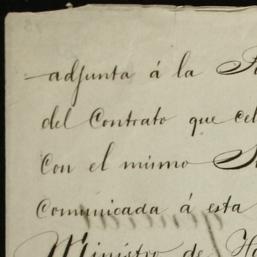 adjunta á la
del Contrato que cel
Con el mismo
Comunicada á esta
Ministro de Ha